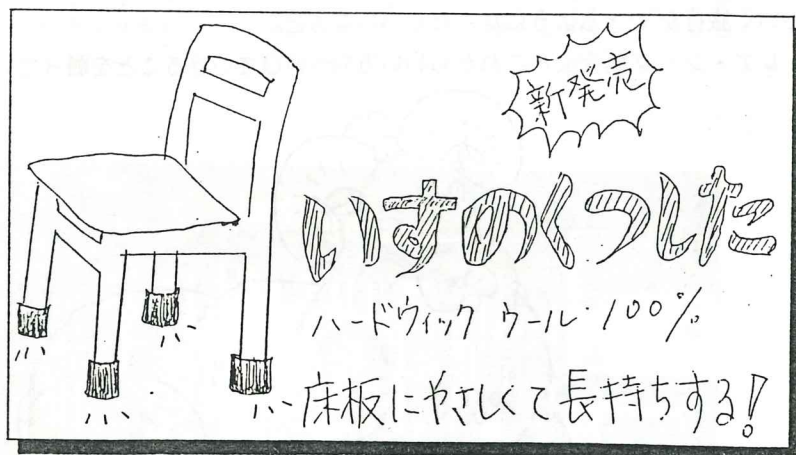 新発売
いすのくつした
ハードウィック ウール・100%
床板にやさしくて長持ちする!